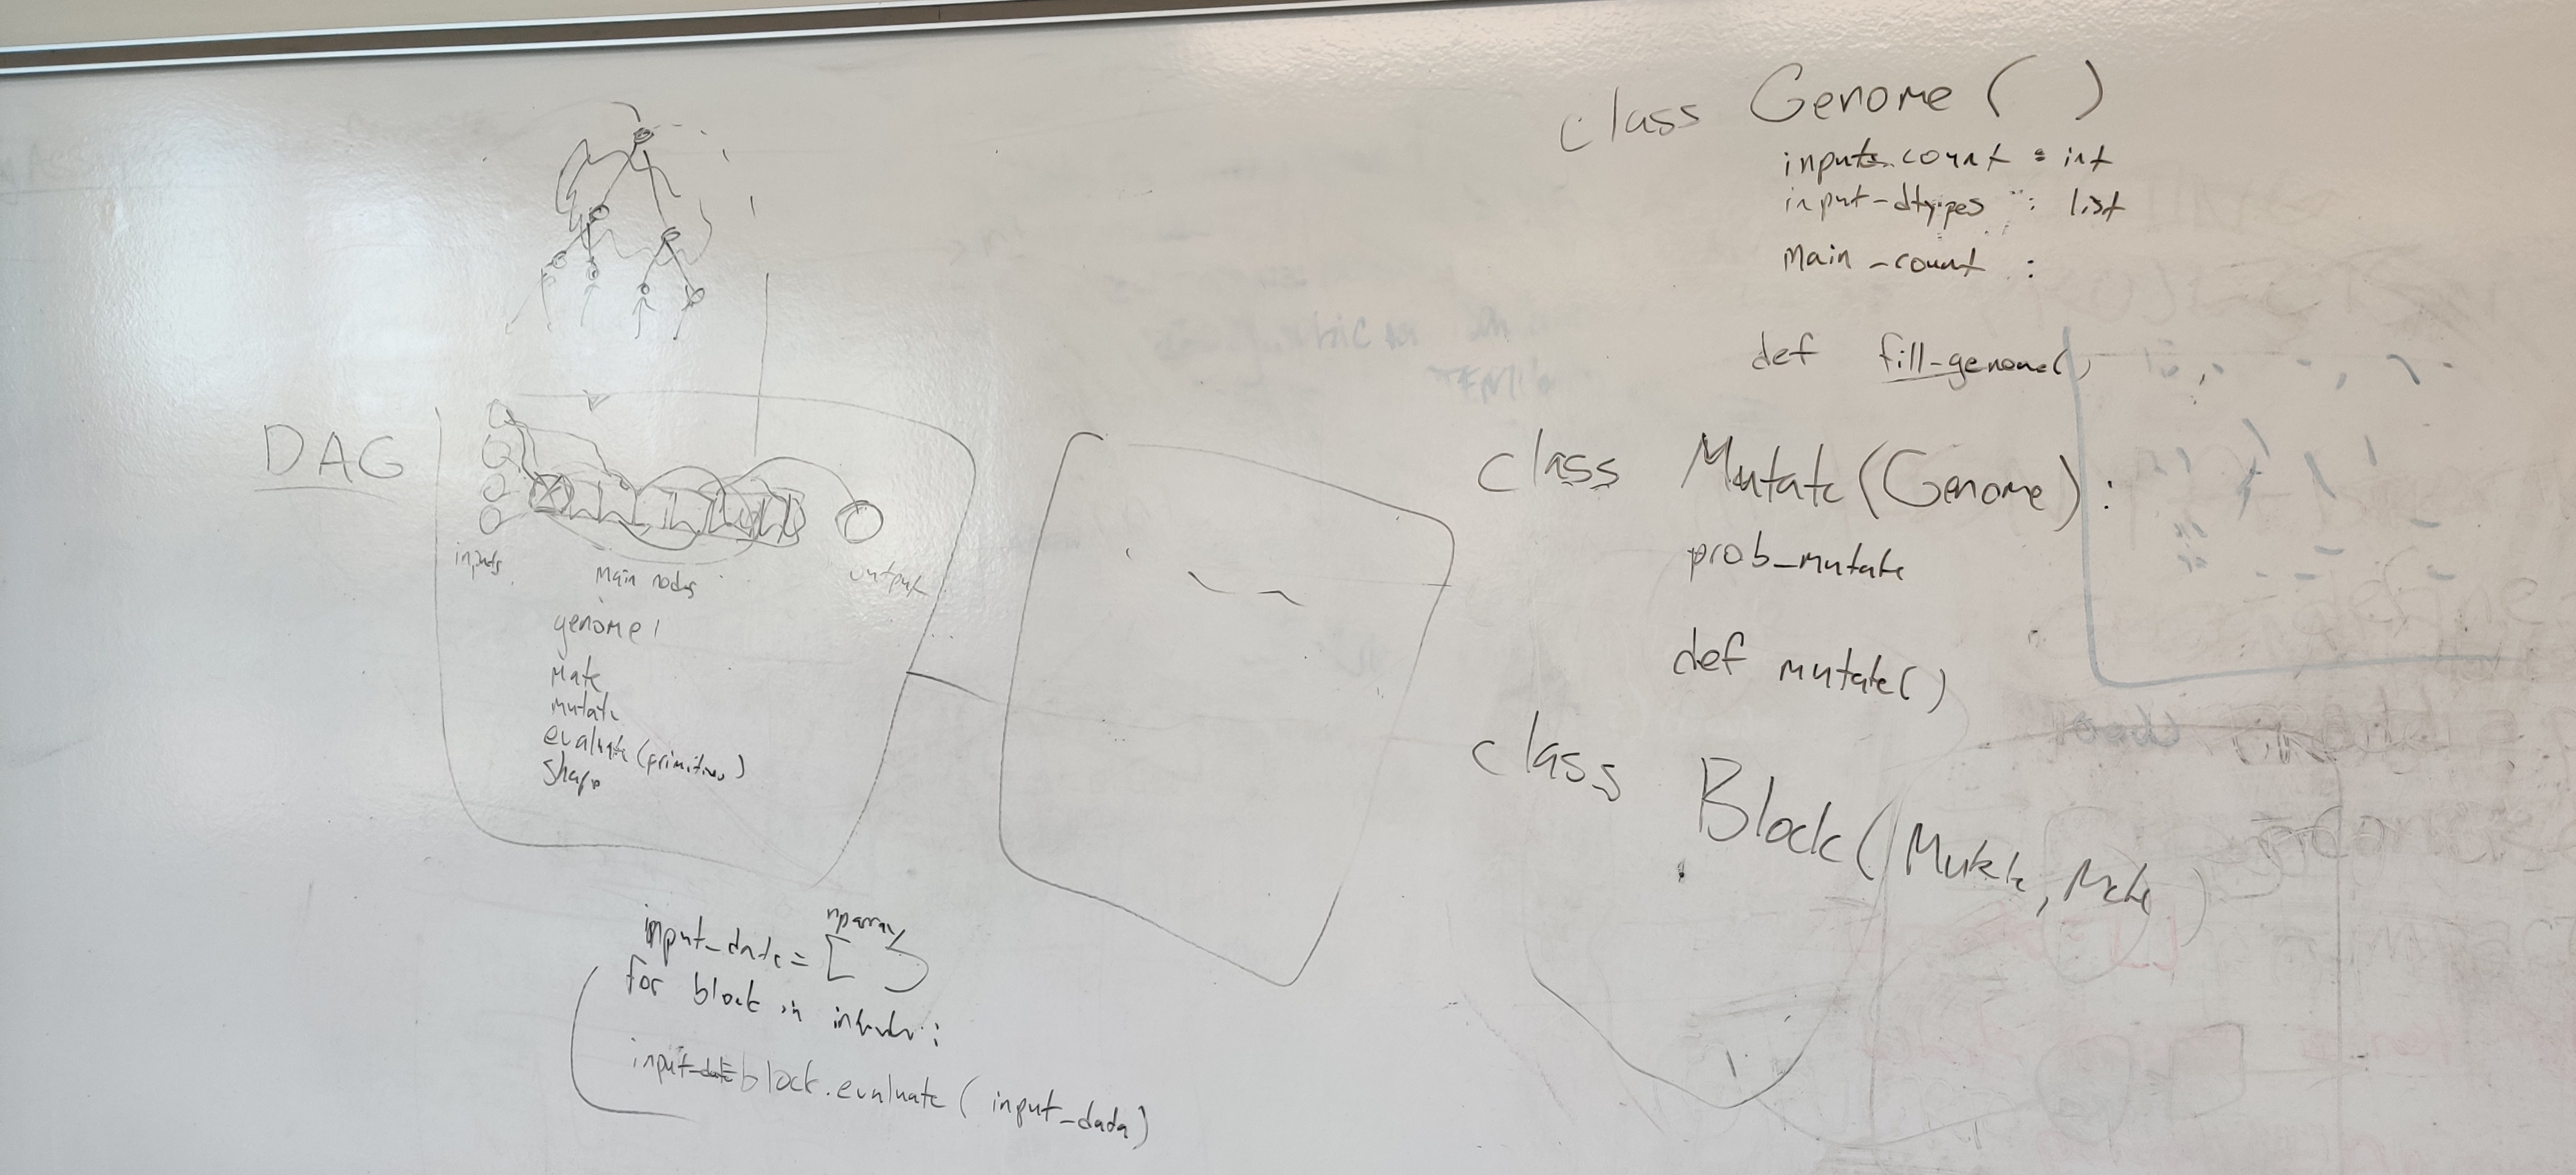 DAG
inputs
main nodes
output
genome 1
Mate
mutate
evaluate (primitives)
shape
nparray
input_data = [ ]
for block in
input_data = block.evaluate ( input_dada)
class Genome ( )
inputs count : int
input-dtypes : list
Main _count :
def fill-genome()
class Mutate (Genome) :
prob_mutate
def mutate()
class Block ( Mutate, Mate )